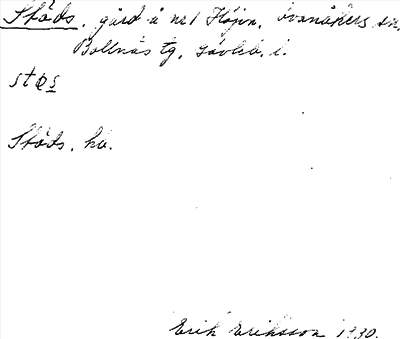 Ståds. gård å nr 1 Höjen, Ovanåkers sn.
Bollnäs tg, Gävleb. l.
støs
Ståds. ha.
Erik Eriksson 1930.